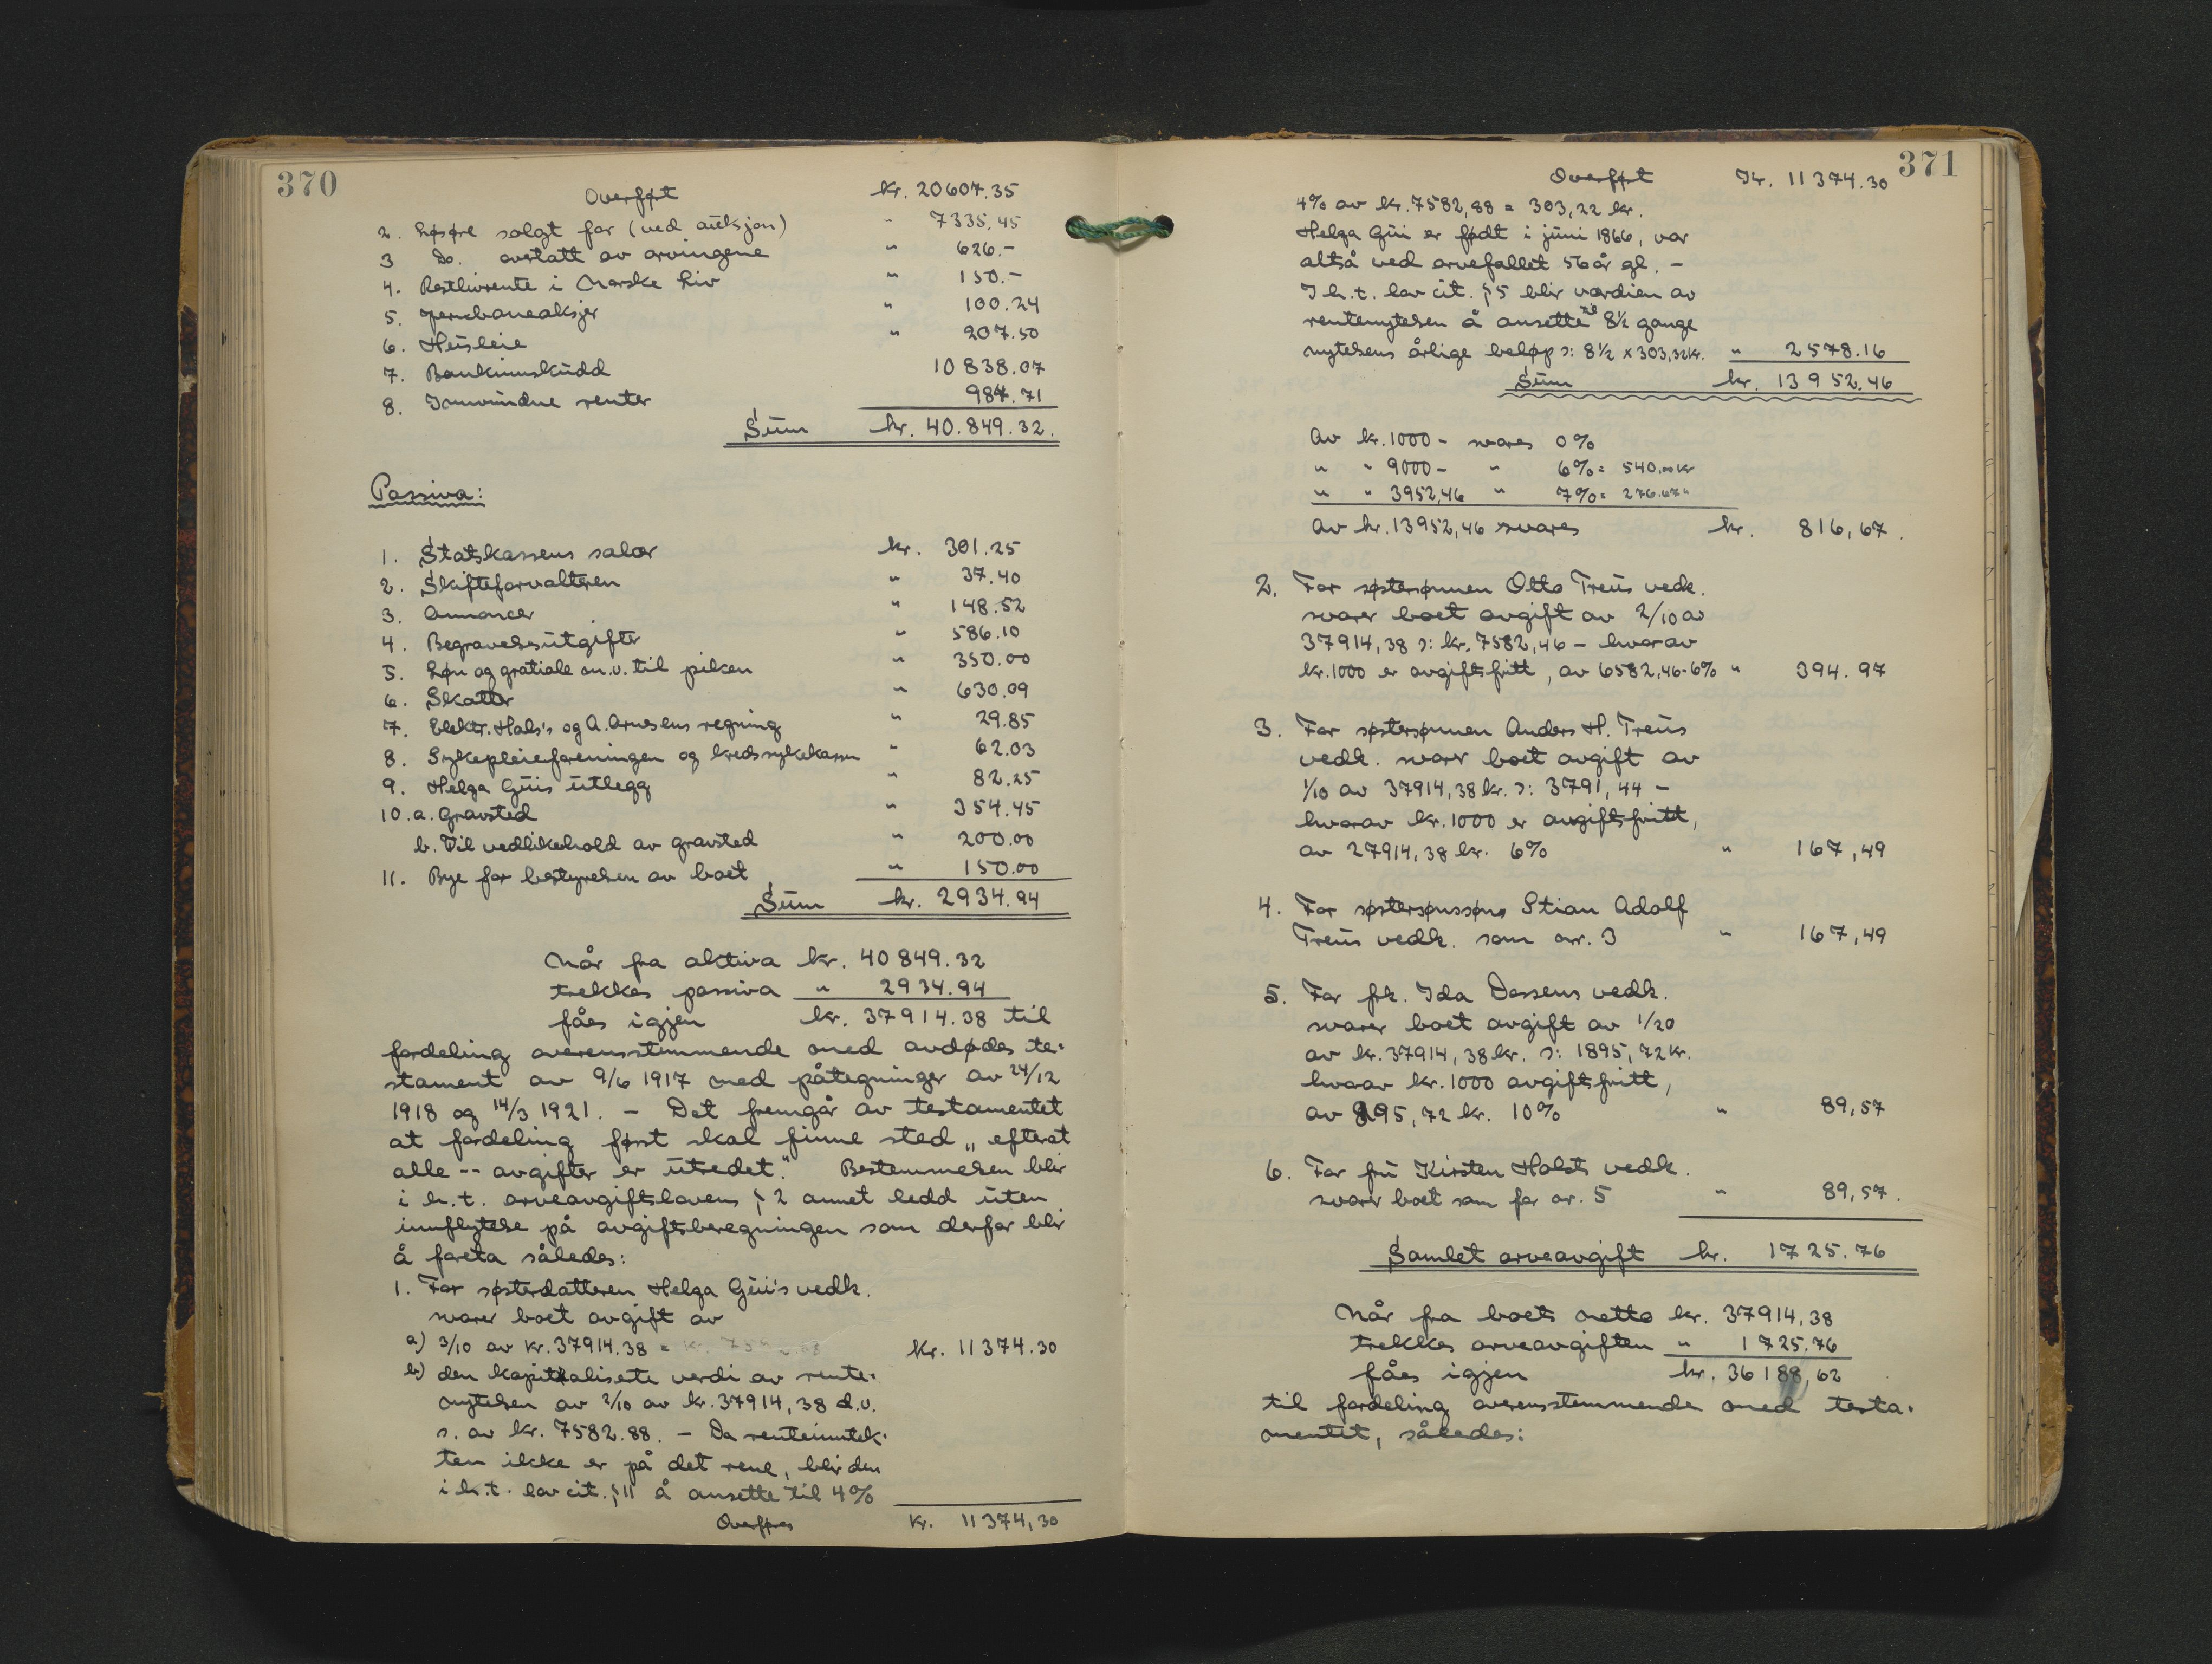 370
Overført kr. 20607.35
2. Løsøre solgt for (ved auksjon) - 7335,45
3 Do. overtatt av arvingene " 626.-
4. Restlivrente i Norske Liv " 150.-
5. Jernbaneaksjer " 100.24
6. Husleie " 207.50
7. Bankinnskudd 10838.07
8. Innvundne renter 984.71
Sum kr. 40.849.32.
Passiva:
1. Statskassens salær kr. 301.25
2. Skifteforvalteren " 37.40
3. Annoncer " 148.52
4. Begravelsesutgifter " 586.10
5. Løn og gratiale m.v. til piken " 350.00
6. Skatter " 630.09
7. Elektr. Hals's og A. Arnesens regning " 29.85
8. Sykepleieforeningen og kredssykekassen " 62.03
9. Helga Guis utlegg " 82.25
10.a. Gravsted " 354.45
b. Til vedlikehold av gravsted " 200.00
11. Bye for bestyrelsen av boet " 150.00
Sum kr. 2934.94
Når fra aktiva kr. 40849.32
trekkes passiva " 2934.94
fåes igjen kr. 37914.38 til
fordeling overensstemmende med avdødes te-
stament av 9/6 1917 med påtegninger av 24/12
1918 og 14/3 1921. - Det fremgår av testamentet
at fordeling først skal finne sted "efterat
alle -- avgifter er utredet." Bestemmelsen blir
i h.t. arveavgiftslovens § 2 annet ledd uten
innflytelse på avgiftsberegningen som derfor blir
å foreta således:
1. For søsterdatteren Helga Gui's vedk.
svarer boet avgift av
a) 3/10 av kr. 37914.38 = kr. 11374.30
b) den kapitaliserte verdi av rente-
nytelsen av 2/10 av kr. 37914,38 d.v.
s. av kr. 7582.88. - Da renteinntek-
ten ikke er på det rene, blir den
i h.t. lov cit. § 11 å ansette til 4%
Overføres kr. 11374,30
371
Overført Kr. 11374.30
4% av kr. 7582,88 = 303,22 kr.
Helga Gui er født i juni 1866, var
altså ved arvefallet 56 år gl. -
I h.t. lov cit. § 5 blir værdien av
rentenytelsen å ansette til 8½ gange
nytelsens årlige beløp ɔ: 8½ x 303,32kr. " 2578.16
Sum kr. 13952.46
Av kr. 1000 - svares 0%
" " 9000 - " 6% = 540.00 kr
" " 3952,46 " 7% = 276.67 "
Av kr. 13952,46 svares kr. 816,67.
2. For søstersønnen Otto Treus vedk.
svarer boet avgift av 2/10 av
37914,38 ɔ: kr. 7582,46 - hvorav
kr. 1000 er avgiftsfritt, av 6582,46 - 6% " 394.97
3. For søstersønnen Anders H. Treus
vedk. svarer boet avgift av
1/10 av 37914,38 kr. ɔ: 3791,44 -
hvorav kr. 1000 er avgiftsfritt,
av 27914,38 kr. 6% " 167,49
4. For søstersønssøns Stian Adolf
Treus vedk. som nr. 3 " 167,49
5. For frk. Ida Dessens vedk.
svarer boet avgift av 1/20
av kr. 37914,38 kr. ɔ: 1895,72 kr.
hvorav kr. 1000 avgiftsfritt,
av 895,72 kr. 10% " 89,57
6. For fru Kirsten Holsts vedk.
svarer boet som for nr. 5 " 89,57.
Samlet arveavgift kr. 1725.76
Når fra boets netto kr. 37914,38
trekkes arveavgiften " 1725.76
fåes igjen kr. 36188,62
til fordeling overensstemmende med testa-
mentet, således: